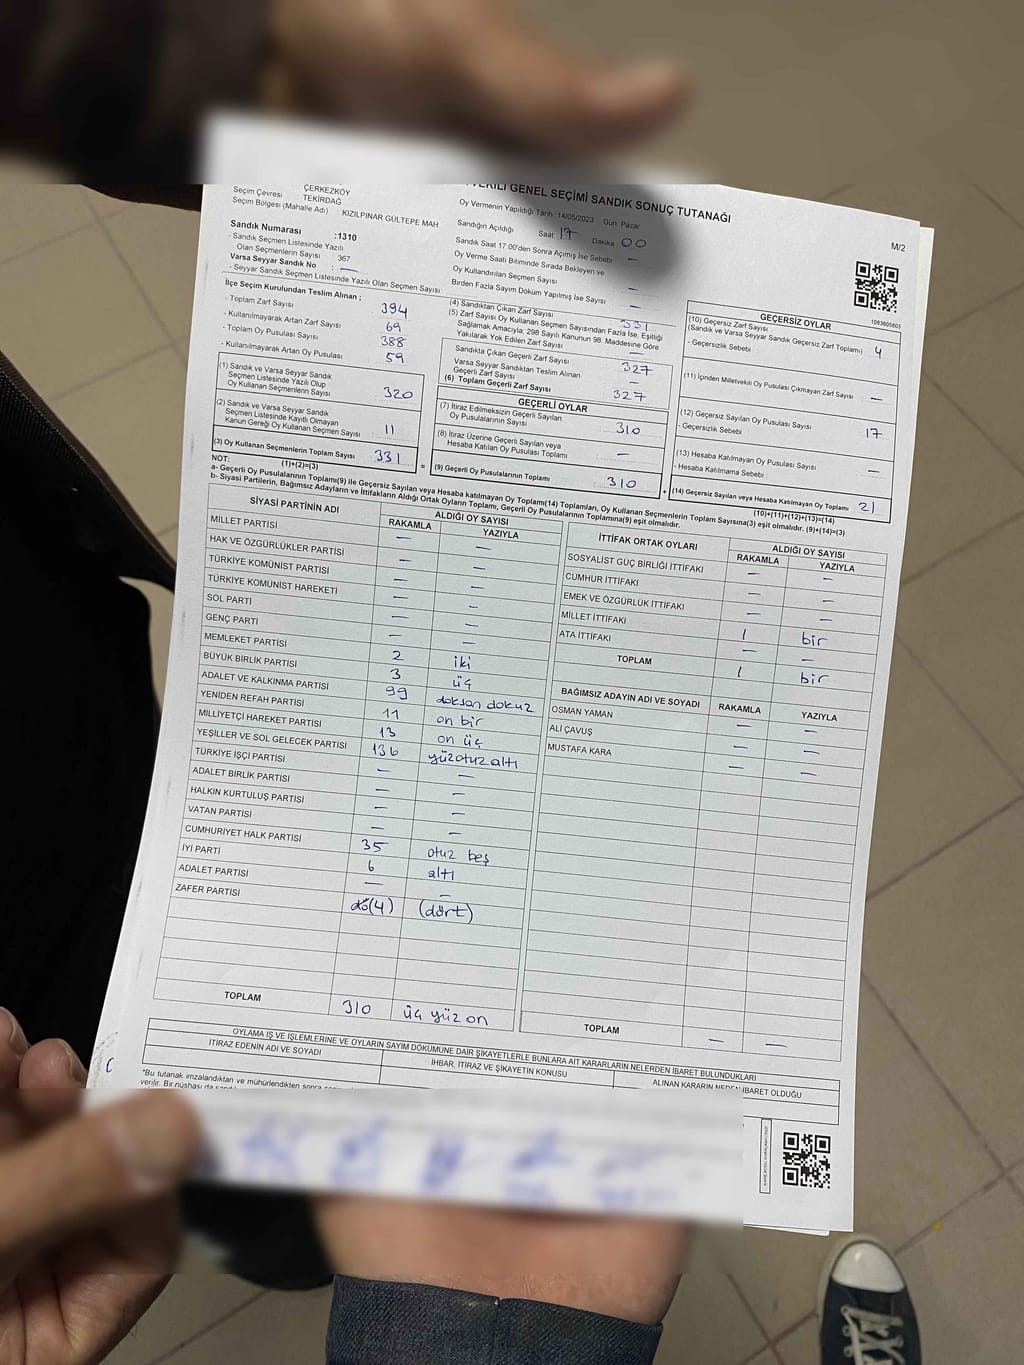 GENEL SEÇİMİ SANDIK SONUÇ TUTANAĞI
ÇERKEZKÖY
Seçim Çevresi : TEKİRDAĞ
Seçim Bölgesi (Mahalle Adı) : KIZILPINAR GÜLTEPE MAH
Oy Vermenin Yapıldığı Tarih :14/05/2023 Gün: Pazar
Sandığın Açıldığı Saat 17 Dakika 00
M/2
Sandık Numarası :1310
- Sandık Seçmen Listesinde Yazılı
Olan Seçmenlerin Sayısı 367
Varsa Seyyar Sandık No : —
- Seyyar Sandık Seçmen Listesinde Yazılı Olan Seçmen Sayısı
Sandık Saat 17.00'den Sonra Açılmış İse Sebebi —
Oy Verme Saati Bitiminde Sırada Bekleyen ve
Oy Kullandırılan Seçmen Sayısı —
Birden Fazla Sayım Döküm Yapılmış İse Sayısı —
1083605803
İlçe Seçim Kurulundan Teslim Alınan ;
- Toplam Zarf Sayısı 394
- Kullanılmayarak Artan Zarf Sayısı 69
- Toplam Oy Pusulası Sayısı 388
- Kullanılmayarak Artan Oy Pusulası 59
(1) Sandık ve Varsa Seyyar Sandık
Seçmen Listesinde Yazılı Olup
Oy Kullanan Seçmenlerin Sayısı 320
(2) Sandık ve Varsa Seyyar Sandık
Seçmen Listesinde Kayıtlı Olmayan
Kanun Gereği Oy Kullanan Seçmen Sayısı 11
(3) Oy Kullanan Seçmenlerin Toplam Sayısı 331
(1)+(2)=(3)
(4) Sandıktan Çıkan Zarf Sayısı 331
(5) Zarf Sayısı Oy Kullanan Seçmen Sayısından Fazla İse, Eşitliği
Sağlamak Amacıyla, 298 Sayılı Kanunun 98. Maddesine Göre
Yakılarak Yok Edilen Zarf Sayısı —
Sandıkta Çıkan Geçerli Zarf Sayısı 327
Varsa Seyyar Sandıktan Teslim Alınan
Geçerli Zarf Sayısı —
(6) Toplam Geçerli Zarf Sayısı 327
GEÇERLİ OYLAR
(7) İtiraz Edilmeksizin Geçerli Sayılan
Oy Pusulalarının Sayısı 310
(8) İtiraz Üzerine Geçerli Sayılan veya
Hesaba Katılan Oy Pusulası Toplamı —
(9) Geçerli Oy Pusulalarının Toplamı : 310
GEÇERSİZ OYLAR
(10) Geçersiz Zarf Sayısı
(Sandık ve Varsa Seyyar Sandık Geçersiz Zarf Toplamı) 4
- Geçersizlik Sebebi :
(11) İçinden Milletvekili Oy Pusulası Çıkmayan Zarf Sayısı —
(12) Geçersiz Sayılan Oy Pusulası Sayısı 17
- Geçersizlik Sebebi
(13) Hesaba Katılmayan Oy Pusulası Sayısı —
- Hesaba Katılmama Sebebi :
(14) Geçersiz Sayılan veya Hesaba Katılmayan Oy Toplamı 21
(10)+(11)+(12)+(13)=(14)
NOT:
a- Geçerli Oy Pusulalarının Toplamı(9) ile Geçersiz Sayılan veya Hesaba katılmayan Oy Toplamı(14) Toplamları, Oy Kullanan Seçmenlerin Toplam Sayısına(3) eşit olmalıdır. (9)+(14)=(3)
b- Siyasi Partilerin, Bağımsız Adayların ve İttifakların Aldığı Ortak Oyların Toplamı, Geçerli Oy Pusulalarının Toplamına(9) eşit olmalıdır.
SİYASİ PARTİNİN ADI ALDIĞI OY SAYISI
RAKAMLA YAZIYLA
MİLLET PARTİSİ — —
HAK VE ÖZGÜRLÜKLER PARTİSİ — —
TÜRKİYE KOMÜNİST PARTİSİ — —
TÜRKİYE KOMÜNİST HAREKETİ — —
SOL PARTİ — —
GENÇ PARTİ — —
MEMLEKET PARTİSİ 2 iki
BÜYÜK BİRLİK PARTİSİ 3 üç
ADALET VE KALKINMA PARTİSİ 99 doksan dokuz
YENİDEN REFAH PARTİSİ 11 on bir
MİLLİYETÇİ HAREKET PARTİSİ 13 on üç
YEŞİLLER VE SOL GELECEK PARTİSİ 136 yüzotuzaltı
TÜRKİYE İŞÇİ PARTİSİ — —
ADALET BİRLİK PARTİSİ — —
HALKIN KURTULUŞ PARTİSİ — —
VATAN PARTİSİ — —
CUMHURİYET HALK PARTİSİ 35 otuz beş
İYİ PARTİ 6 altı
ADALET PARTİSİ — —
ZAFER PARTİSİ dö(4) (dört)
TOPLAM 310 üç yüz on
İTTİFAK ORTAK OYLARI ALDIĞI OY SAYISI
RAKAMLA YAZIYLA
SOSYALİST GÜÇ BİRLİĞİ İTTİFAKI — —
CUMHUR İTTİFAKI — —
EMEK VE ÖZGÜRLÜK İTTİFAKI — —
MİLLET İTTİFAKI 1 bir
ATA İTTİFAKI — —
TOPLAM 1 bir
BAĞIMSIZ ADAYIN ADI VE SOYADI RAKAMLA YAZIYLA
OSMAN YAMAN — —
ALİ ÇAVUŞ — —
MUSTAFA KARA — —
TOPLAM — —
OYLAMA İŞ VE İŞLEMLERİNE VE OYLARIN SAYIM DÖKÜMÜNE DAİR ŞİKAYETLERLE BUNLARA AİT KARARLARIN NELERDEN İBARET BULUNDUKLARI
İTİRAZ EDENİN ADI VE SOYADI
İHBAR, İTİRAZ VE ŞİKAYETİN KONUSU
ALINAN KARARIN NEDEN İBARET OLDUĞU
"Bu tutanak imzalandıktan ve mühürlendikten sonra
verilir. Bir nüshası da